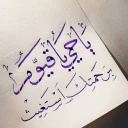 يا حي يا قيوم
برحمتك أستغيث